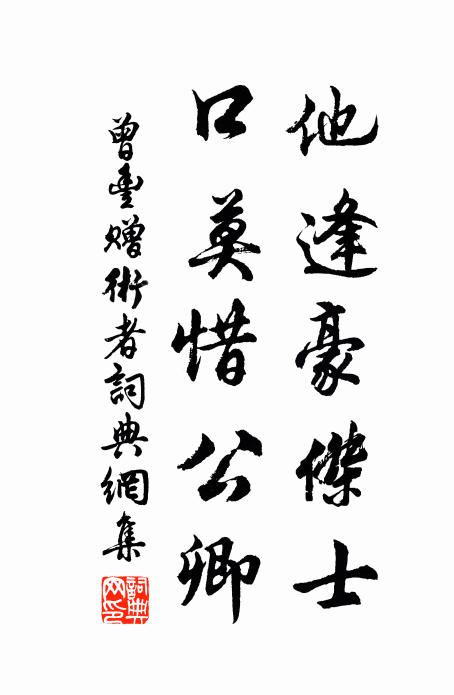 他逢豪傑士
口莫惜公卿
曾豊贈術者詞典網集
詞典网印